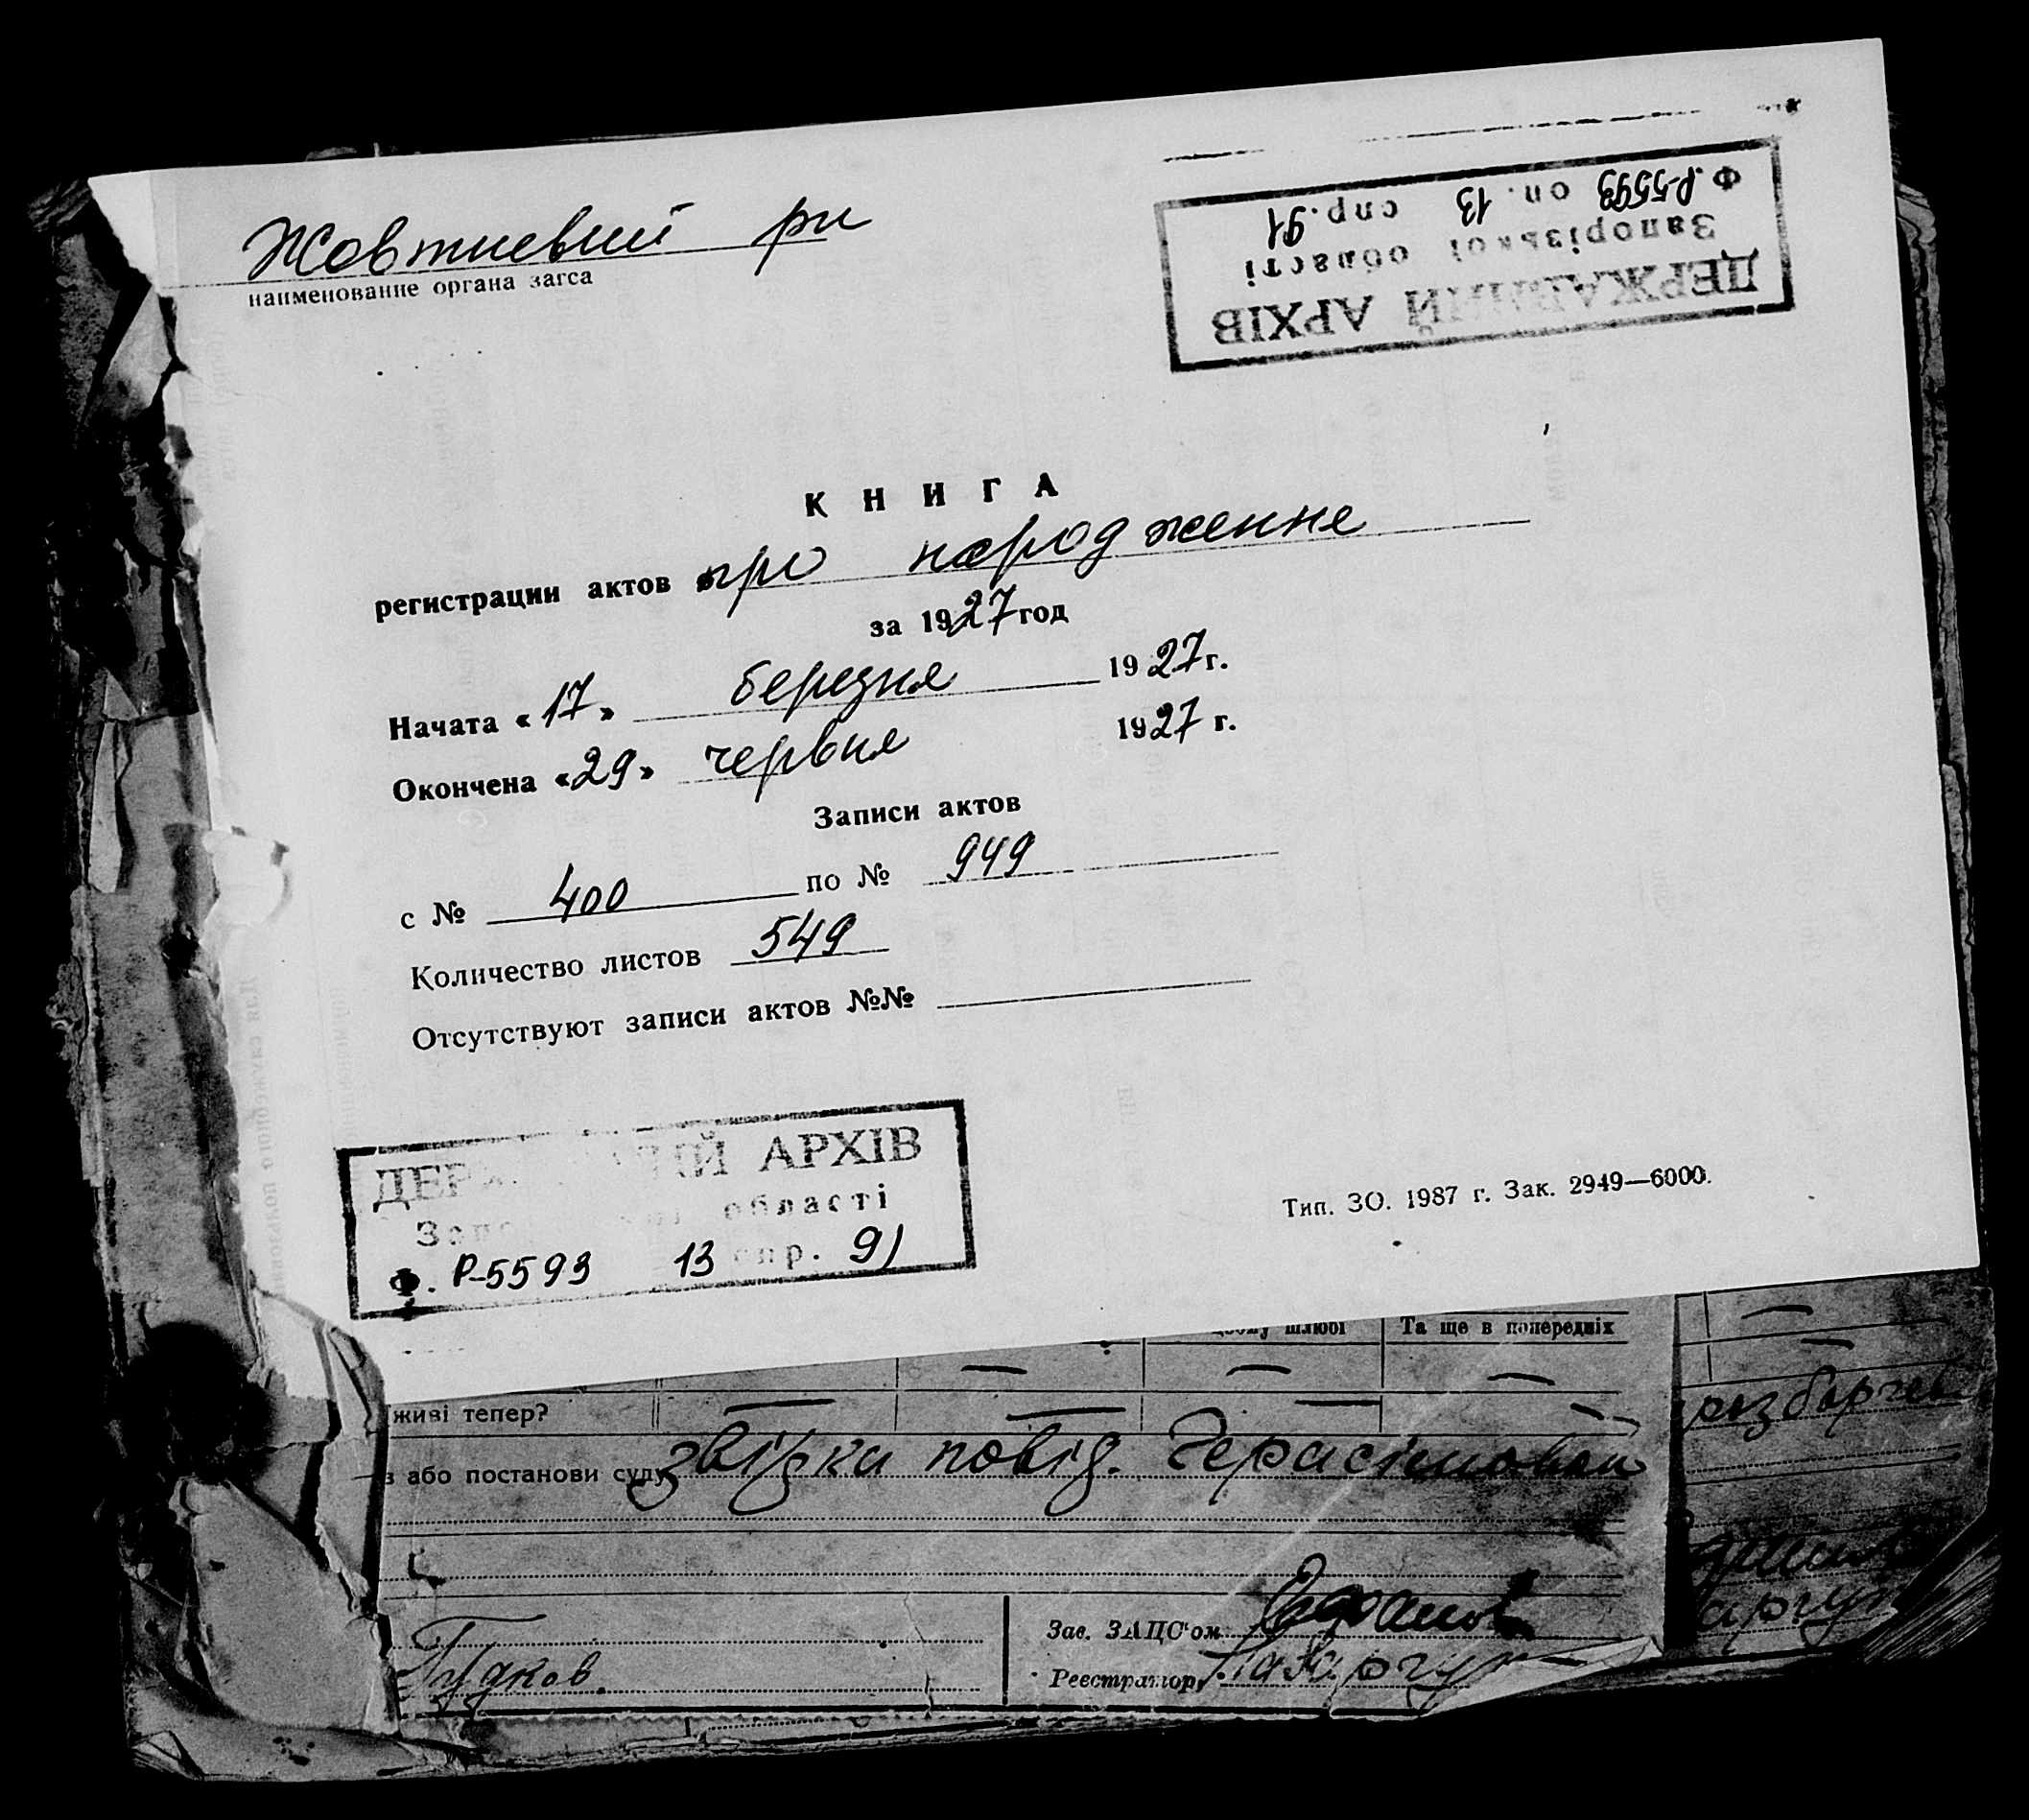 Жовтневий рн
наименование органа загса
ДЕРЖАВНИЙ АРХІВ
Запорізької області
Ф. Р-5593 оп. 13 спр. 91
КНИГА
регистрации актов про народження
за 1927 год
Начата «17» березня 1927 г.
Окончена «29» червня 1927 г.
Записи актов
с № 400 по № 949
Количество листов 549
Отсутствуют записи актов №№
ДЕРЖАВНИЙ АРХІВ
Запорізької області
Ф. Р-5593 13 спр. 91
Тип. ЗО. 1987 г. Зак. 2949—6000.
шлюбі Та ще в попередніх
живі тепер?
або постанови суду звірка повід. Герасімовой
Гудков.
Зав. ЗАЦС'ом
Реєстратор